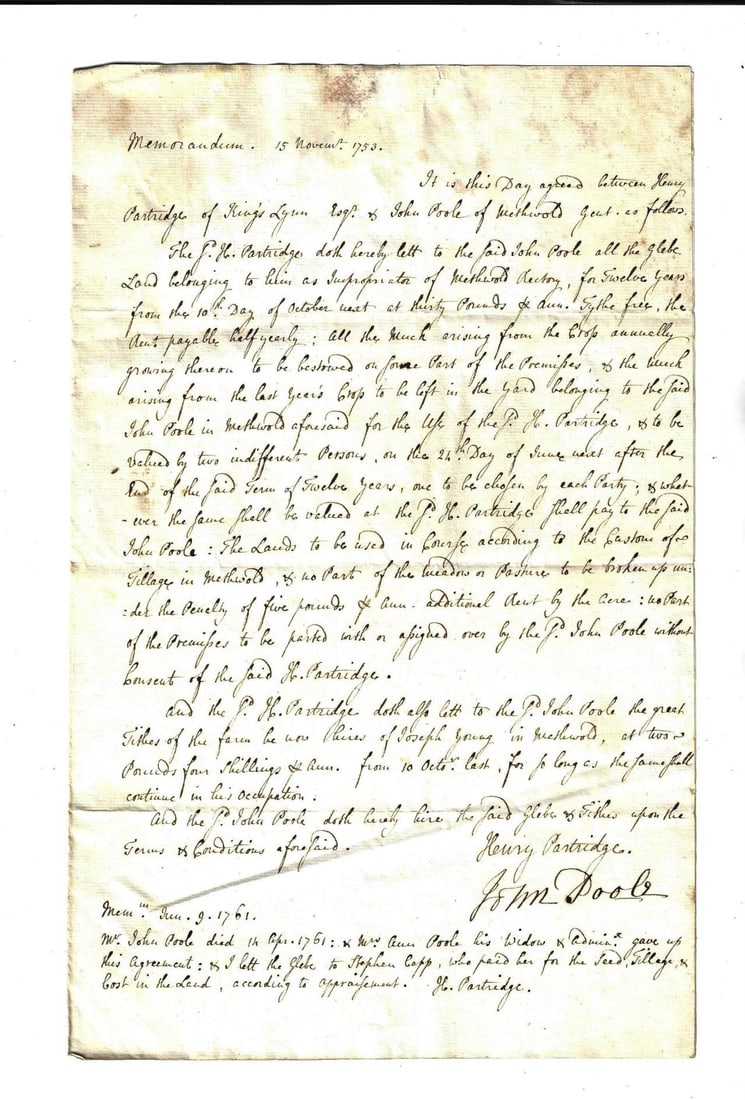 Memorandum. 15 Novemr. 1753.
It is this Day agreed between Henry
Partridge of King's Lynn Esqr. & John Poole of Methwold Gent. as follows.
The sd. H. Partridge doth hereby lett to the said John Poole all the Glebe
Land belonging to him as Impropriator of Methwold Rectory, for Twelve Years
from the 10th. Day of October next at thirty Pounds P Ann. Tythe free, the
Rent payable half yearly: All the Muck arising from the Crop annually
growing thereon to be bestowed on some Part of the Premisses, & the Muck
arising from the last Year's Crop to be left in the Yard belonging to the said
John Poole in Methwold aforesaid for the Use of the sd. H. Partridge, & to be
valued by two indifferent Persons, on the 24th. Day of June next after the
End of the said Term of Twelve Years, one to be chosen by each Party; & what-
-ever the same shall be valued at the sd. H. Partridge shall pay to the said
John Poole: The Lands to be used in Course according to the Custom of
Tillage in Methwold, & no Part of the Meadow or Pasture to be broken up un-
:der the Penalty of five pounds P Ann. additional Rent by the Acre: no Part
of the Premisses to be parted with or assigned over by the sd. John Poole without
Consent of the said H. Partridge.
And the sd. H. Partridge doth also lett to the sd. John Poole the great
Tithes of the farm he now hires of Joseph Young in Methwold, at two
Pounds four Shillings P Ann. from 10 Octor. last, for so long as the same shall
continue in his Occupation:
And the sd. John Poole doth hereby hire the said Glebe & Tithes upon the
Terms & Conditions aforesaid.
Henry Partridge.
John Poole
Memm. Jun. 9. 1761.
Mr. John Poole died 14 Apr. 1761: & Mrs Ann Poole his Widow & Adminx. gave up
this Agreement: & I lett the Glebe to Stephen Capp, who paid her for the Seed, Tillage, &
Cost in the Land, according to appraisement. H. Partridge.